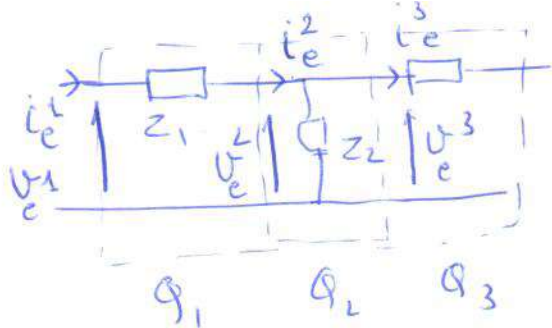 i_e^2 i_e^3
i_e^1 Z_1 v_e^2 Z_2 v_e^3
v_e^1
Q_1 Q_2 Q_3